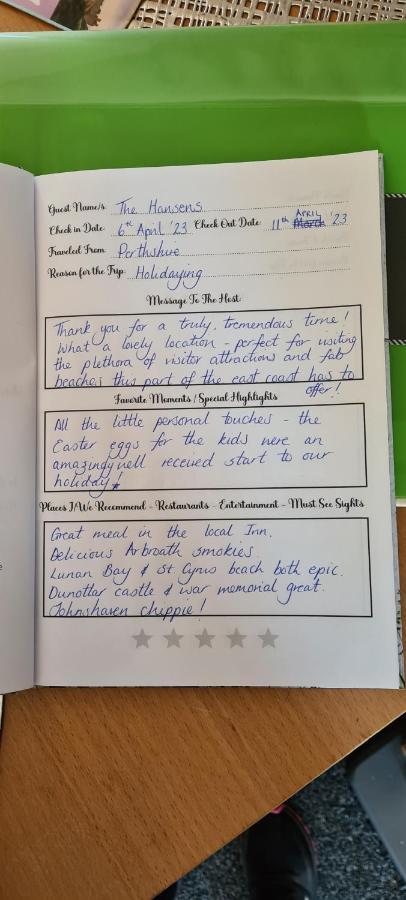 Guest Name/s: The Hansens
Check in Date: 6th April '23 Check Out Date: 11th April March '23
Traveled From: Perthshire
Reason for the Trip: Holidaying
Message To The Host:
Thank you for a truly, tremendous time!
What a lovely location - perfect for visiting
the plethora of visitor attractions and fab
beaches this part of the east coast has to
offer!
Favorite Moments / Special Highlights
All the little personal touches - the
Easter eggs for the kids were an
amazingly well received start to our
holiday!
Places I/We Recommend - Restaurants - Entertainment - Must See Sights
Great meal in the local Inn.
Delicious Arbroath smokies.
Lunan Bay & St. Cyrus beach both epic.
Dunottar castle & war memorial great.
Johnshaven chippie!